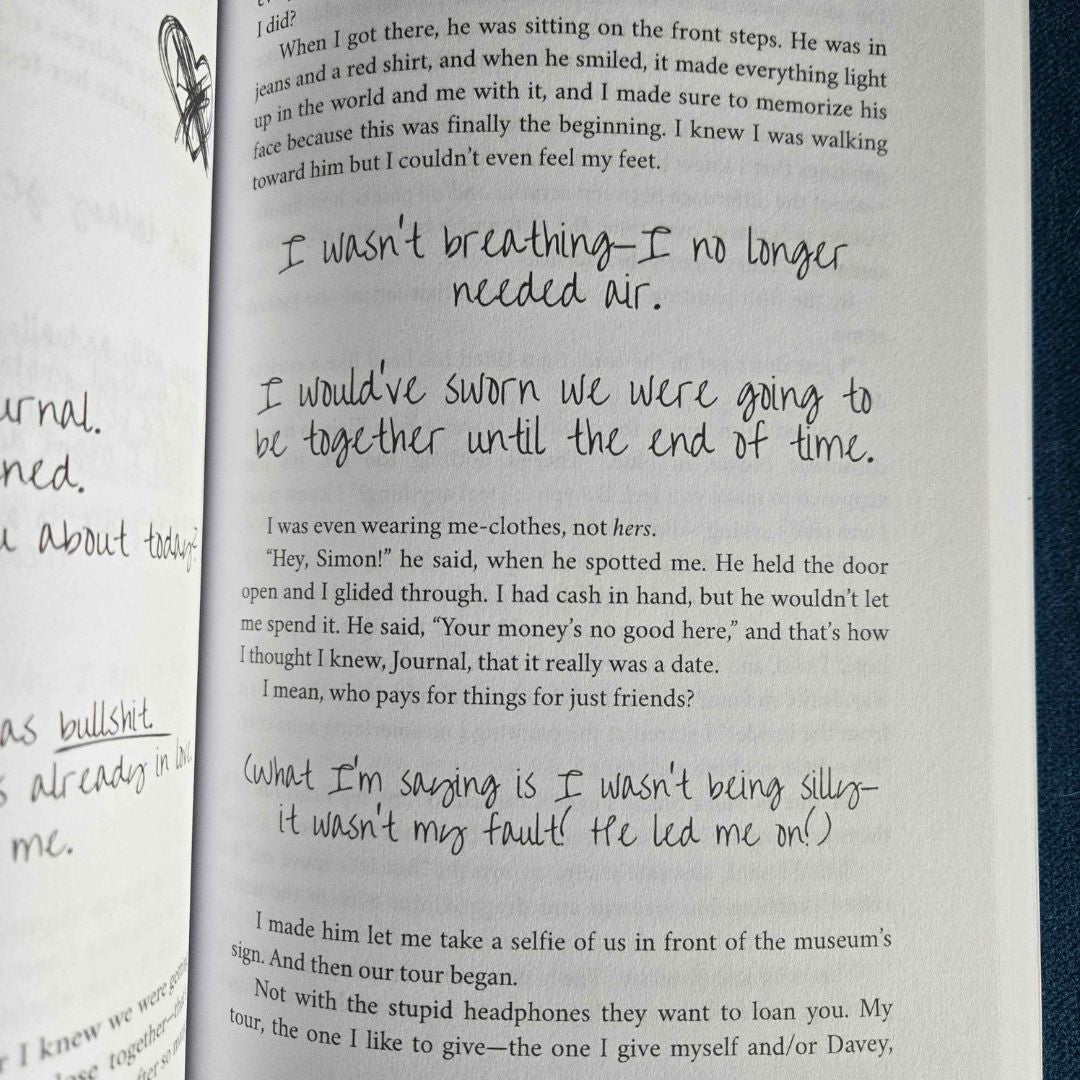 urnal.
ned.
about today?
as bullshit.
already in love
me.
I knew we were
together—
I did?
When I got there, he was sitting on the front steps. He was in
jeans and a red shirt, and when he smiled, it made everything light
up in the world and me with it, and I made sure to memorize his
face because this was finally the beginning. I knew I was walking
toward him but I couldn't even feel my feet.
I wasn't breathing—I no longer
needed air.
I would've sworn we were going to
be together until the end of time.
I was even wearing me-clothes, not hers.
"Hey, Simon!" he said, when he spotted me. He held the door
open and I glided through. I had cash in hand, but he wouldn't let
me spend it. He said, "Your money's no good here," and that's how
I thought I knew, Journal, that it really was a date.
I mean, who pays for things for just friends?
(What I'm saying is I wasn't being silly—
it wasn't my fault! He led me on!)
I made him let me take a selfie of us in front of the museum's
sign. And then our tour began.
Not with the stupid headphones they want to loan you. My
tour, the one I like to give—the one I give myself and/or Davey,